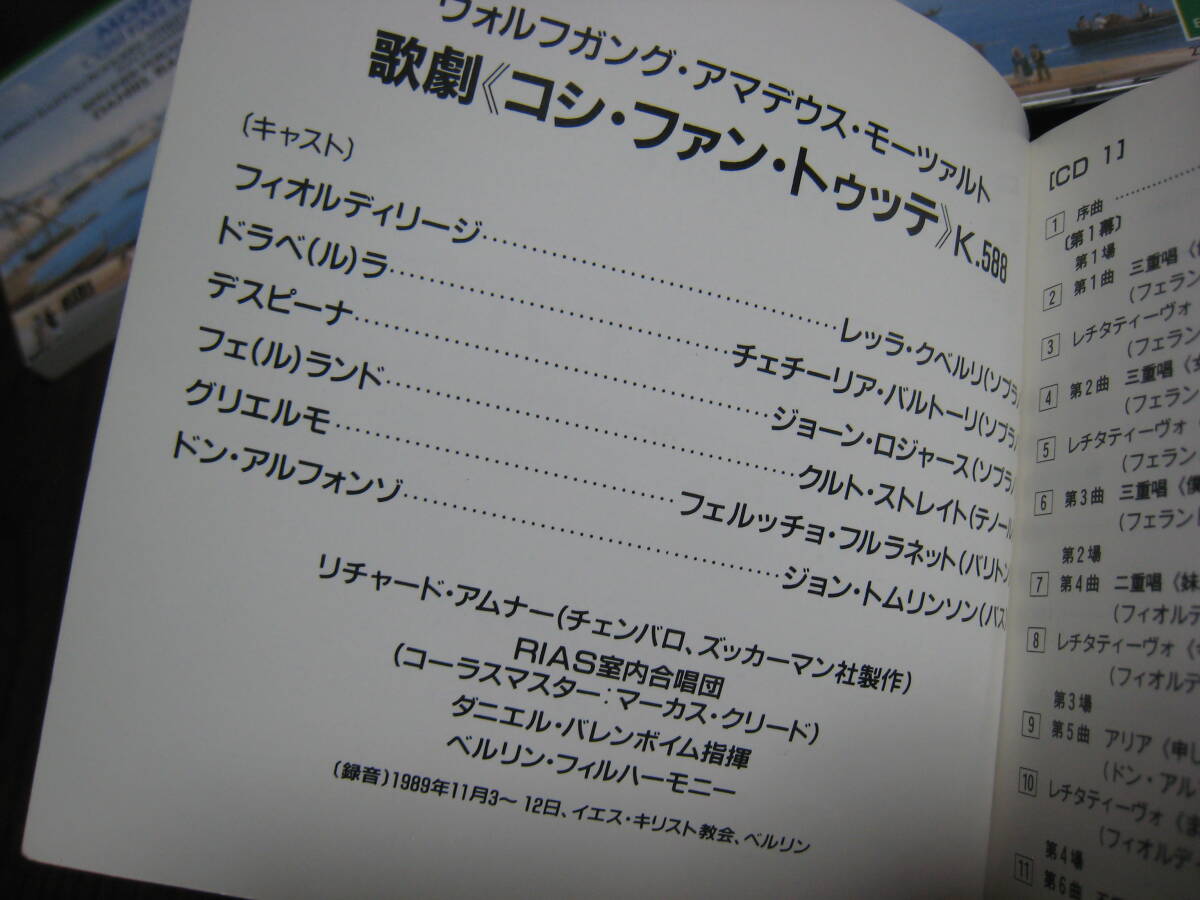 ウォルフガング・アマデウス・モーツァルト
歌劇《コシ・ファン・トゥッテ》K.588
(キャスト)
フィオルディリージ……………………レッラ・クベルリ(ソプラ
ドラベ(ル)ラ……………………チェチーリア・バルトーリ(ソプラ
デスピーナ……………………ジョーン・ロジャース(ソプラ
フェ(ル)ランド……………………クルト・ストレイト(テノール
グリエルモ……………………フェルッチョ・フルラネット(バリトン
ドン・アルフォンゾ……………………ジョン・トムリンソン(バス
リチャード・アムナー(チェンバロ、ズッカーマン社製作)
RIAS室内合唱団
(コーラスマスター:マーカス・クリード)
ダニエル・バレンボイム指揮
ベルリン・フィルハーモニー
(録音)1989年11月3〜12日、イエス・キリスト教会、ベルリン
[CD 1]
1 序曲…………
〔第1幕〕
第1場
2 第1曲 三重唱
(フェラン
3 レチタティーヴォ
(フェラン
4 第2曲 三重唱《女
(フェラン
5 レチタティーヴォ
(フェラン
6 第3曲 三重唱《僕
(フェラント
第2場
7 第4曲 二重唱《妹
(フィオルデ
8 レチタティーヴォ
(フィオルデ
第3場
9 第5曲 アリア《申し
(ドン・アル
10 レチタティーヴォ《ま
(フィオルディ
第4場
11 第6曲